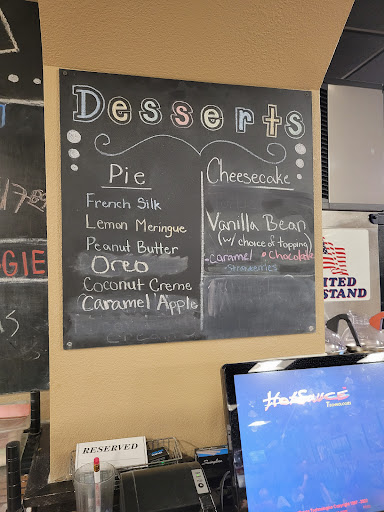 Desserts
Pie
French Silk
Lemon Meringue
Peanut Butter
Oreo
Coconut Creme
Caramel Apple
Cheesecake
Vanilla Bean
(w/ choice of topping)
-caramel •chocolate
-strawberries
GIE
ITED
STAND
RESERVED
HotSauce
Technologies